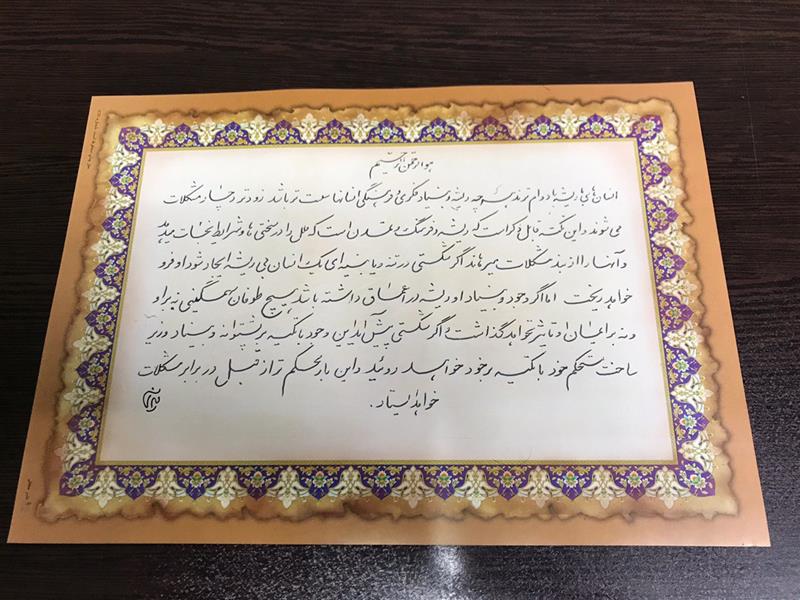 هو الرحمن الرحیم
انسان های با ریشه بادوام ترند هر چه ریشه و بنیاد فکری و فرهنگی انسانها سست تر باشد زودتر دچار مشکلات
می شوند و این نکته قابل ذکر است که ریشه و فرهنگ و تمدن است که ملل را در سختی ها و شرایط نجات میدهد
و آنها را از بند مشکلات میرهاند اگر شکستی در تنه و یا بنیه ای یک انسان بی ریشه ایجاد شود او فرو
خواهد ریخت اما اگر وجود و بنیاد او ریشه در اعماق داشته باشد هیچ طوفان سهمگینی نه بر او
و نه بر ایمان او تاثیر نخواهد گذاشت و اگر شکستی پیش آید این وجود با تکیه بر پشتوانه و بنیاد و زیر
ساخت مستحکم خود با تکیه بر خود خواهد روئید و این بار محکم تر از قبل در برابر مشکلات
خواهد ایستاد.